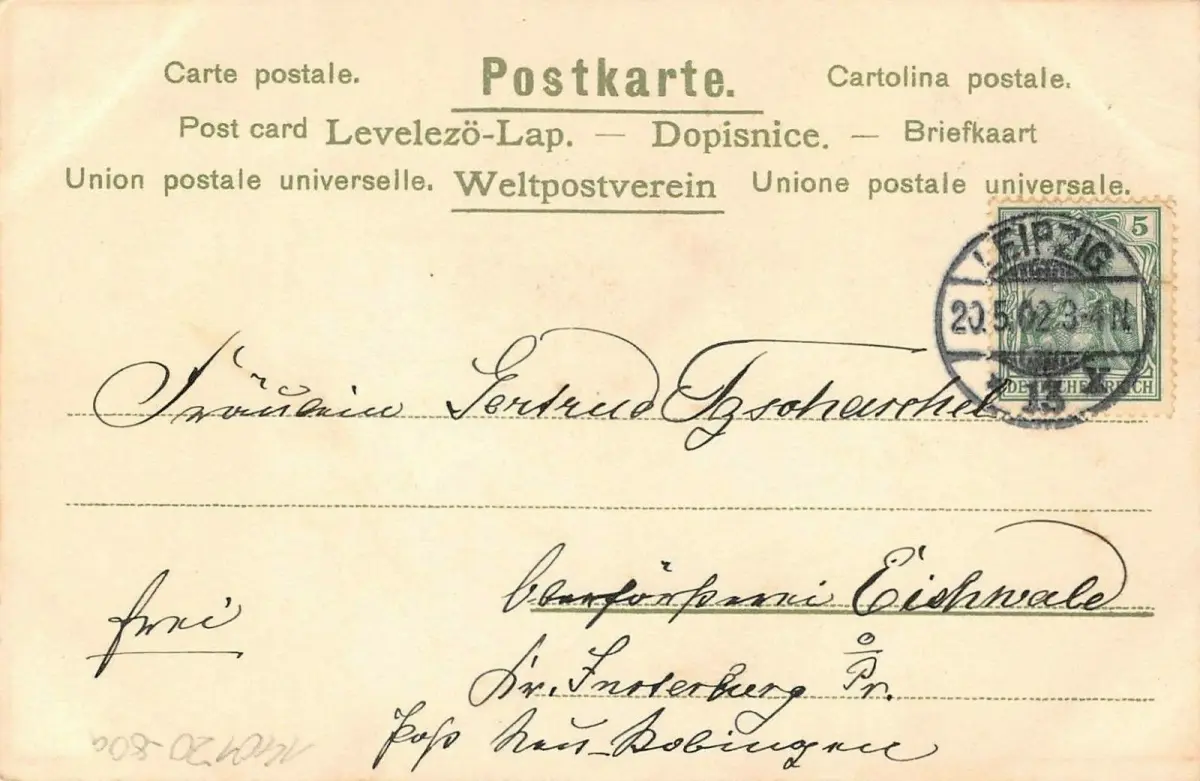 Carte postale. Postkarte. Cartolina postale.
Post card Levelezö-Lap. — Dopisnice. — Briefkaart
Union postale universelle. Weltpostverein Unione postale universale.
5
LEIPZIG
20.5.02.3-4N.
* 13 *
DEUTSCHES REICH
Fräulein Gertrud Tzschaschel
Oberförsterei Eichwald
frei
Kr. Insterburg O/Pr.
Post Neu-